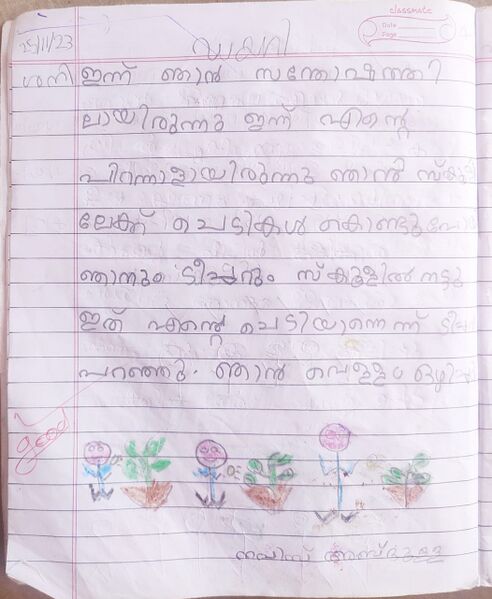 classmate
Date
Page
25/11/23
ഡയറി
ശനി ഇന്ന് ഞാൻ സന്തോഷത്തി
ലായിരുന്നു ഇന്ന് എന്റെ
പിറന്നാളായിരുന്നു ഞാൻ സ്കൂളി
ലേക്ക് ചെടികൾ കൊണ്ടുപോ
ഞാനും ടീച്ചറും സ്കൂളിൽ നട്ടു
ഇത് എന്റെ ചെടിയാന്നെന്ന്
പറഞ്ഞു. ഞാൻ വെള്ളം ഒഴി
good
അബ്ദുള്ള